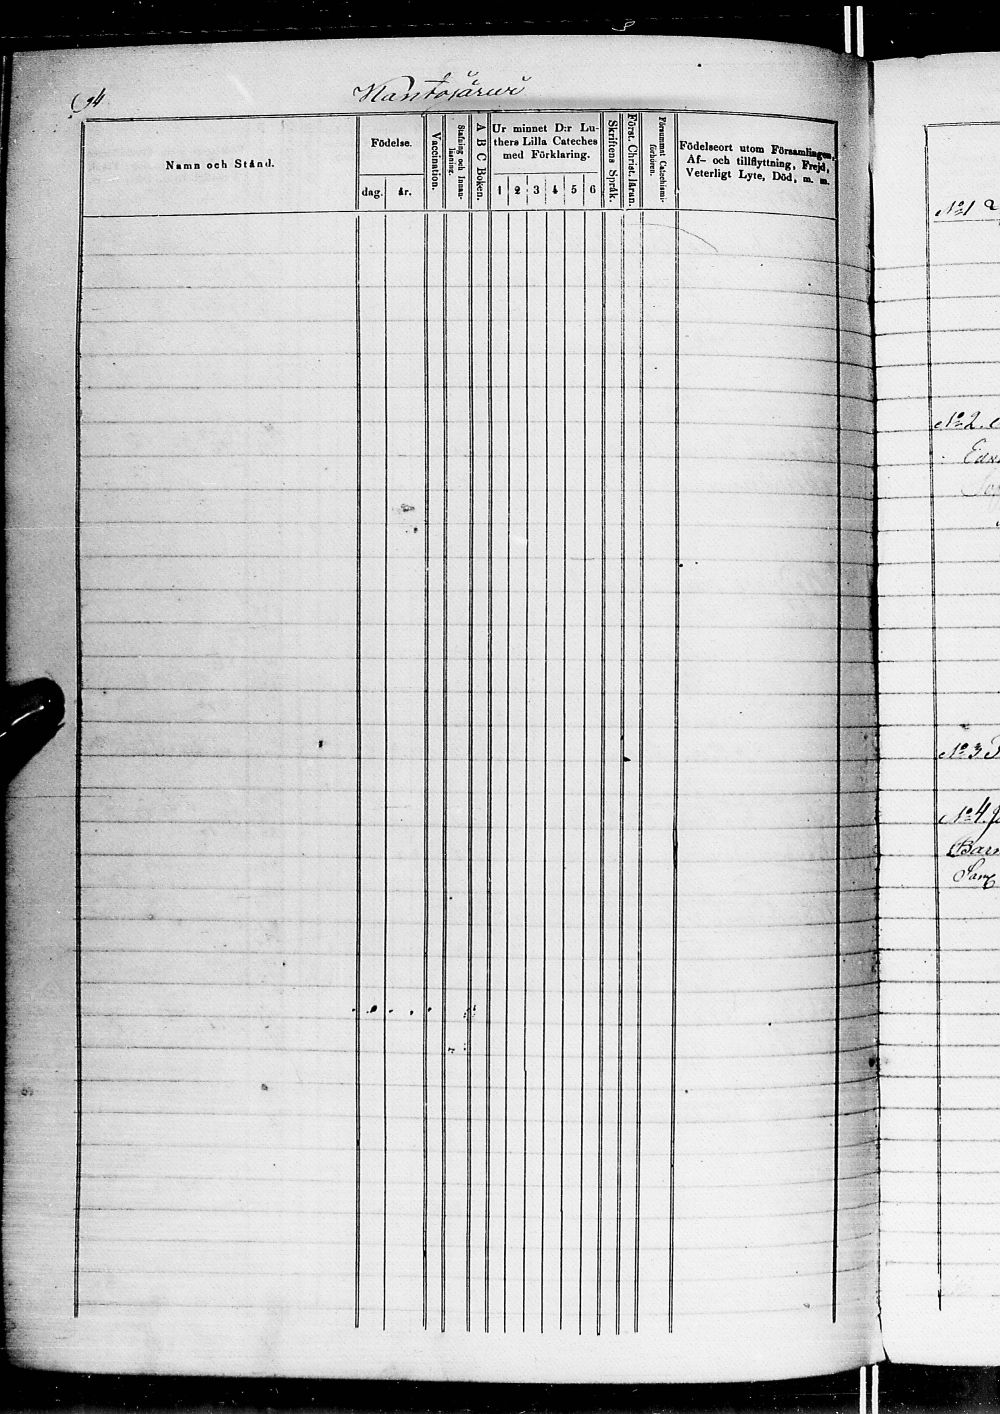 94
Namn och Stånd.
Födelse.
dag.
år.
Vaccination.
Stafning och Innanläsning.
A B C Boken.
Ur minnet D:r Lu-
thers Lilla Cateches
med Förklaring.
1 2 3 4 5 6
Skriftens Språk.
Först. Christ. läran.
Försummat Catechismi-
förhören.
Födelseort utom Församlingen,
Af- och tillflyttning, Frejd,
Veterligt Lyte, Död, m. m.
No 1
No 2.
No 3
No 4.